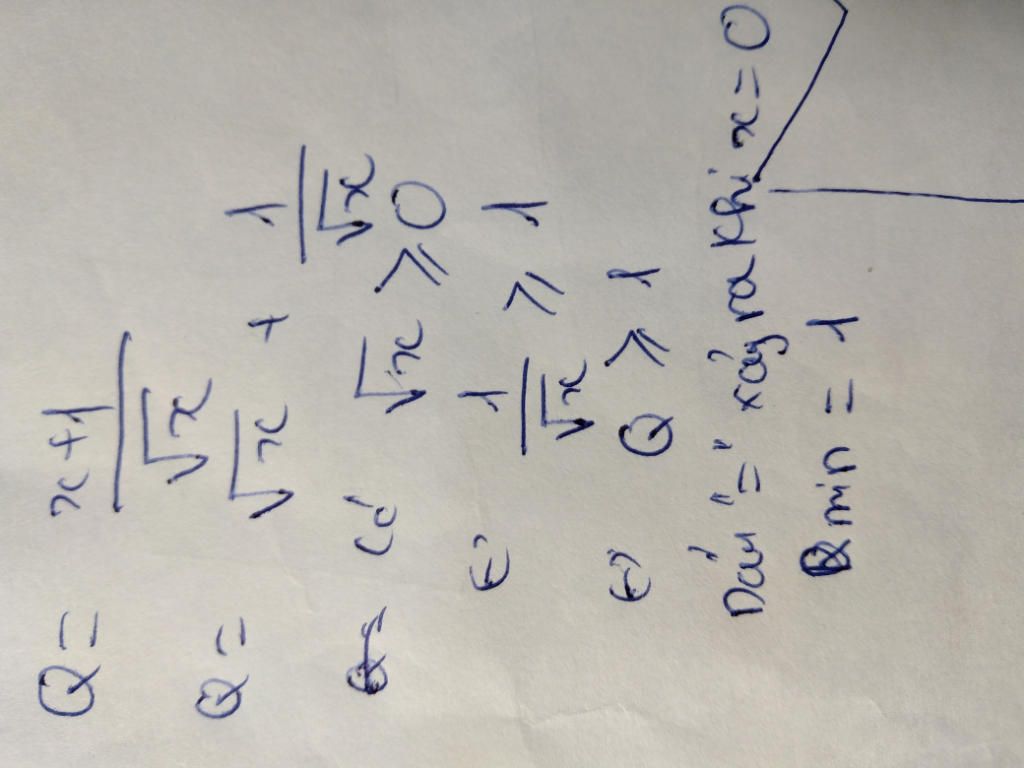 Q = x+1/√x
Q = √x + 1/√x
có √x ≥ 0
1/√x ≥ 1
Q ≥ 1
Dấu "=" xảy ra khi x = 0
Qmin = 1